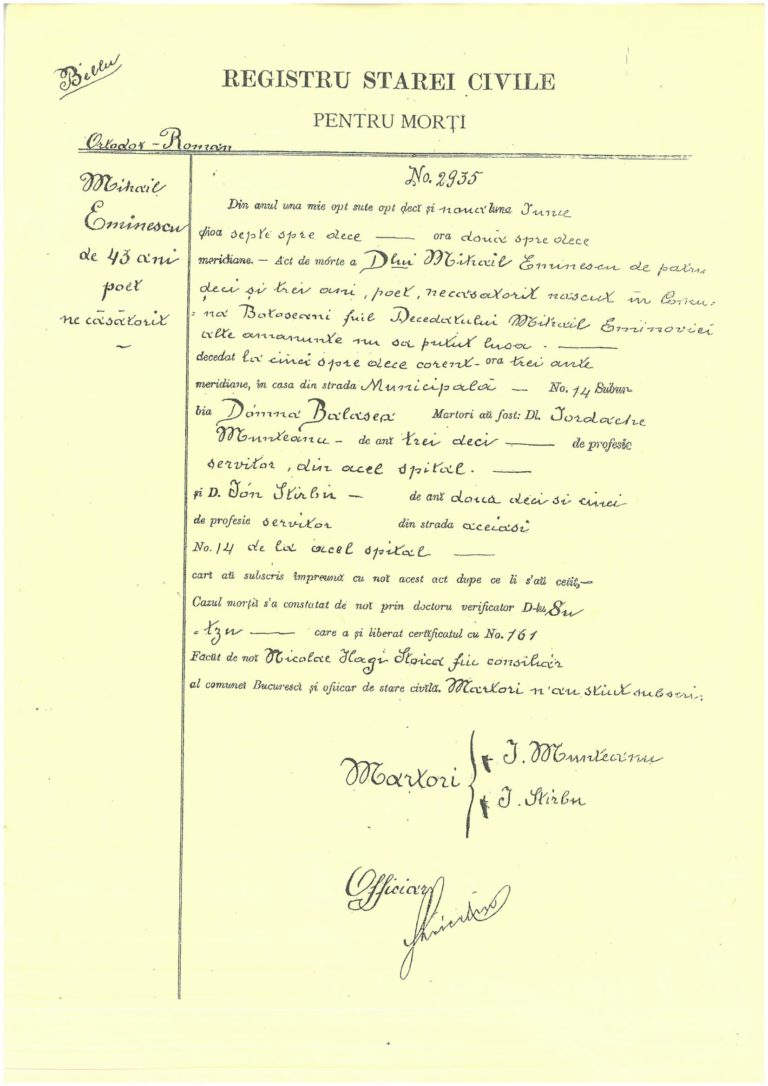 Bellu
REGISTRU STAREI CIVILE
PENTRU MORȚI
Ortodox - Român
Mihail
Eminescu
de 43 ani
poet
necăsătorit
No. 2935
Din anul una mie opt sute opt deci și noua luna Iunie
dioa septe spre dece — ora două spre dece
meridiane. — Act de mórte a Dlui Mihail Eminescu de patru
deci și trei ani, poet, necasatorit nascut in Comu-
na Botoseani fiul Decedatului Mihail Eminovici
alte amanunte nu sa putut lua. —
decedat la cinci spre dece corent - ora trei ante
meridiane, in casa din strada Municipală — No. 14 Subur
bia Dómna Balasea Martori aŭ fost: Dl. Iordache
Munteanu - de anĭ trei deci — de profesie
servitor, din acel spital. —
și D. Ión Stirbu — de anĭ doua deci si cinci
de profesie servitor din strada aceiasi
No. 14 de la acel spital —
carĭ aŭ subscris împreună cu noĭ acest act dupe ce li s'aŭ cetit,—
Cazul morțiĭ s'a constatat de noĭ prin doctoru verificator D-lu Su
tzu — care a și liberat certificatul cu No. 161
Făcut de noĭ Nicolae Hagi Stoica fiu consiliár
al comuneĭ Bucuresci și oficiar de stare civilă. Martori n'au stiut subscri.
Martori
I. Munteanu
I. Stirbu
Officiar